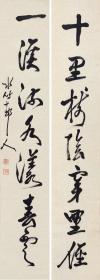 十里樹陰穿野徑
一溪流水漾春雲
水竹邨人